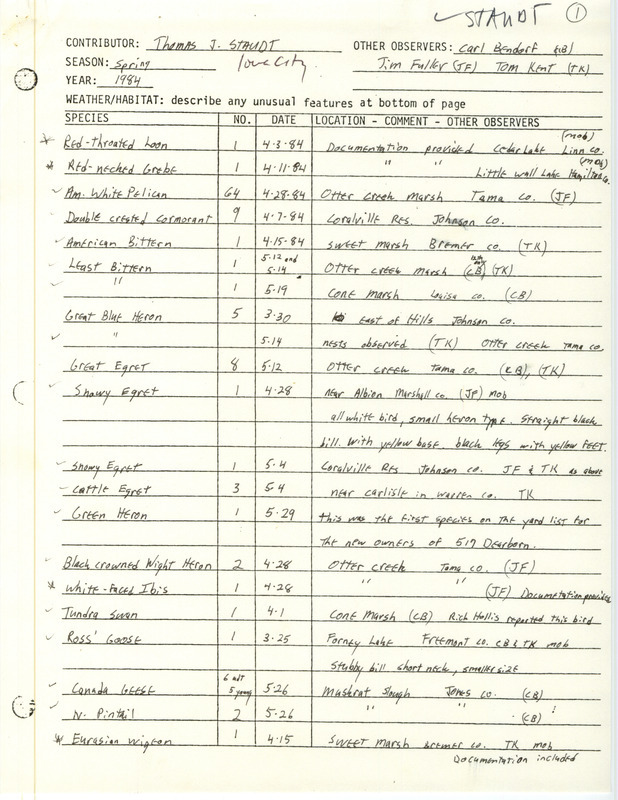 ✓STAUDT ①
CONTRIBUTOR: Thomas J. STAUDT OTHER OBSERVERS: Carl Bendorf (CB)
SEASON: Spring Iowa City Jim Fuller (JF) Tom Kent (TK)
YEAR: 1984
WEATHER/HABITAT: describe any unusual features at bottom of page
SPECIES NO. DATE LOCATION - COMMENT - OTHER OBSERVERS
* Red-throated Loon 1 4-3-84 Documentation provided Cedar Lake Linn Co. (mob)
* Red-necked Grebe 1 4-11-84 " " Little Wall Lake Hamilton Co. (mob)
✓ Am. White Pelican 64 4-28-84 Otter Creek Marsh Tama Co. (JF)
✓ Double crested Cormorant 9 4-7-84 Coralville Res. Johnson Co.
✓ American Bittern 1 4-15-84 Sweet Marsh Bremer Co. (TK)
✓ Least Bittern 1 5-12 and 5-14 Otter Creek Marsh (CB) (TK)
" 1 5-19 Cone Marsh Louisa Co. (CB)
Great Blue Heron 5 3-30 East of Hills Johnson Co.
✓ " 5-14 nests observed (TK) Otter Creek Tama Co.
✓ Great Egret 8 5-12 Otter Creek Tama Co. (CB), (TK)
✓ Snowy Egret 1 4-28 near Albion Marshall Co. (JF) mob
all white bird, small heron type. Straight black
bill. With yellow base. black legs with yellow FEET.
✓ Snowy Egret 1 5-4 Coralville Res Johnson Co. JF & TK as above
✓ Cattle Egret 3 5-4 near Carlisle in Warren Co. TK
✓ Green Heron 1 5-29 this was the first species on the yard list for
the new owners of 517 Dearborn.
✓ Black crowned Night Heron 2 4-28 Otter Creek Tama Co. (JF)
* White-Faced Ibis 1 4-28 " " (JF) Documentation provided
✓ Tundra Swan 1 4-1 Cone Marsh (CB) Rich Hollis reported this bird
✓ Ross' Goose 1 3-25 Forney Lake Freemont Co. CB & TK mob
stubby bill short neck, smaller size
✓ Canada Geese 6 adt 5 young 5-26 Muskrat Slough Jones Co. (CB)
✓ N. Pintail 2 5-26 " " (CB)
* Eurasian Wigeon 1 4-15 Sweet Marsh Bremer Co. TK mob
Documentation included